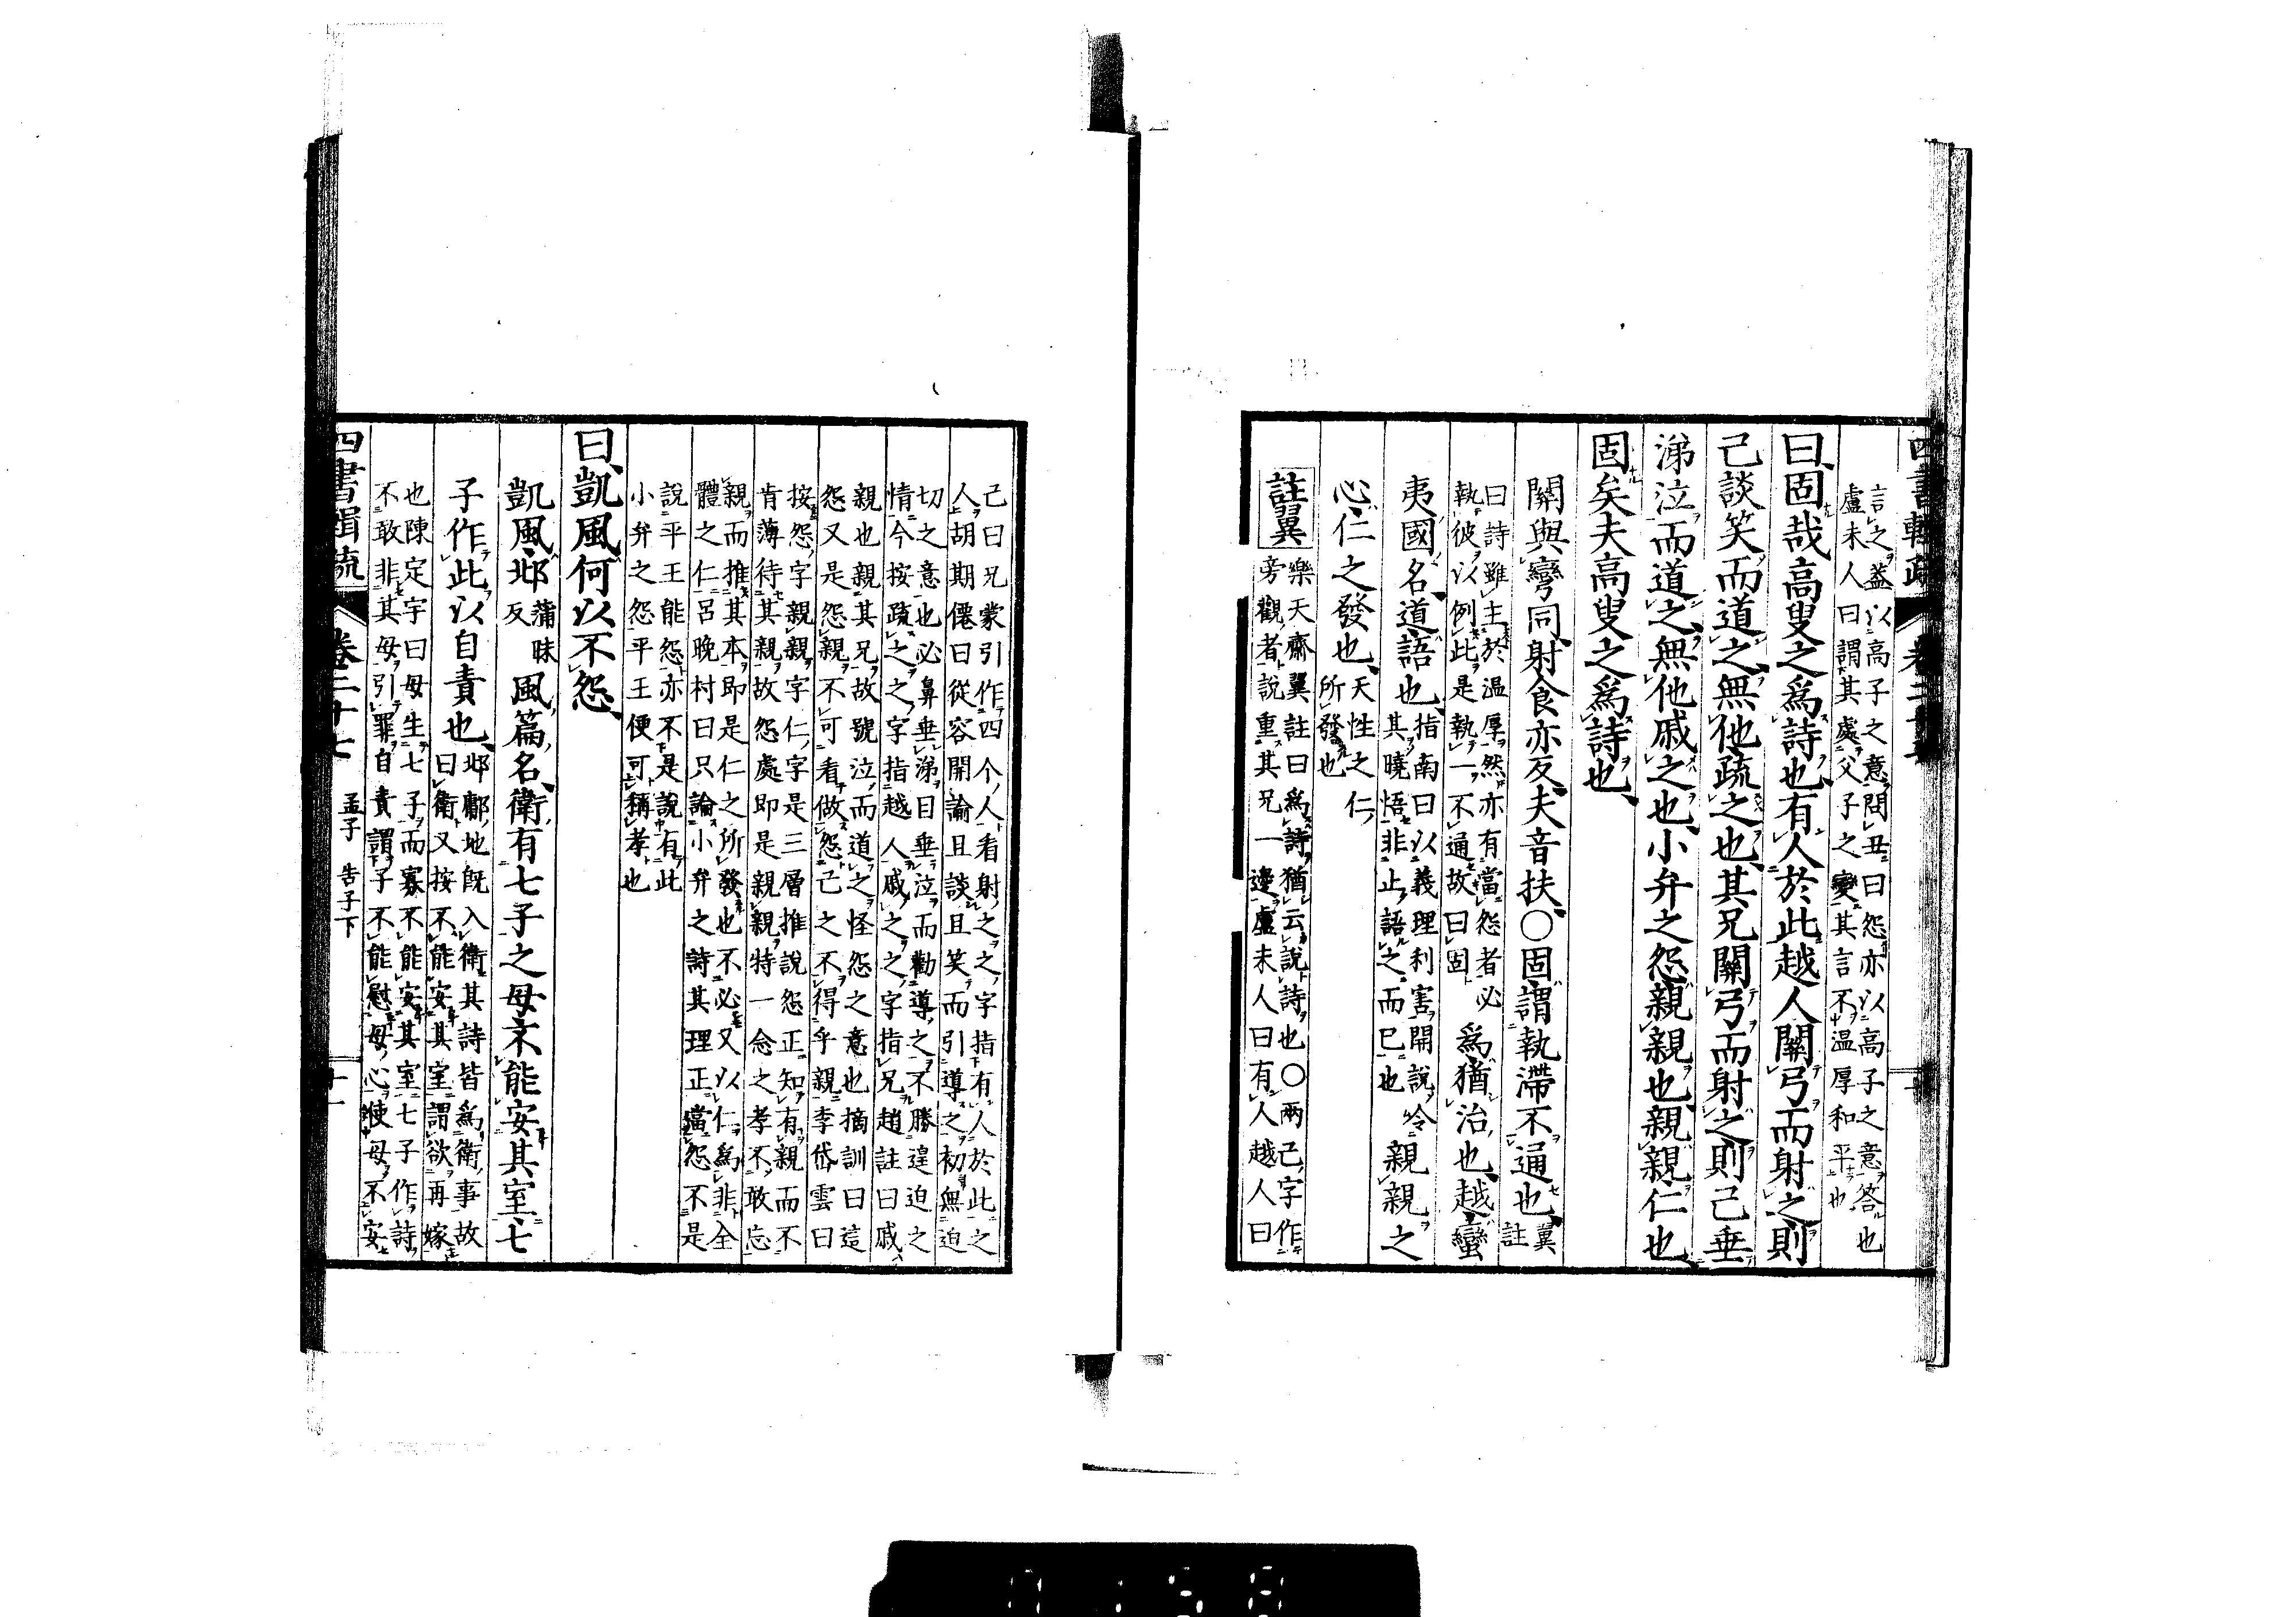 四書輯疏 卷二十七
言之蓋以高子之意問丑曰怨亦以高子之意答也
盧未人曰謂其處父子之變其言不温厚和平也
曰固哉高叟之爲詩也有人於此越人關弓而射之則
己談笑而道之無他疏之也其兄關弓而射之則己垂
涕泣而道之無他戚之也小弁之怨親親也親親仁也
固矣夫高叟之爲詩也
關與彎同射食亦反夫音扶○固謂執滯不通也翼註
曰詩雖主於温厚然亦有當怨者必
執彼以例此是執一不通故曰固
爲猶治也越蠻
夷國名道語也
指南曰以義理利害開說冷
其曉悟非止語之而已也
親親之
心仁之發也
天性之仁
所發也
註翼
樂天齋翼註曰爲詩猶云說詩也○兩己字作
旁觀者說重其兄一邊盧未人曰有人越人曰
己曰兄蒙引作四个人看射之之字指有人於此之
人胡期僊曰從容開諭且談且笑而引導之初無迫
切之意也必鼻垂涕目垂泣而勸導之不勝遑迫之
情今按疏之之字指越人戚之之字指兄趙註曰戚
親也親其兄故號泣而道之怪怨之意也摘訓曰這
怨又是怨親不可看做怨己之不得乎親李岱雲曰
按怨字親親字仁字是三層推說怨正知有親而不
肯薄待其親故怨處即是親親特一念之孝不敢忘
親而推其本即是仁之所發也不必又以仁爲非全
體之仁呂晚村曰只論小弁之詩其理正當怨不是
說平王能怨亦不是說有此
小弁之怨平王便可稱孝也
曰凱風何以不怨
凱風邶
蒲昧
反
風篇名衛有七子之母不能安其室七
子作此以自責也
邶鄘地既入衛其詩皆爲衛事故
曰衛又按不能安其室謂欲再嫁
也陳定宇曰母生七子而寡不能安其室七子作詩
不敢非其母引罪自責謂子不能慰母心使母不安
四書輯疏 卷二十七 孟子 告子下